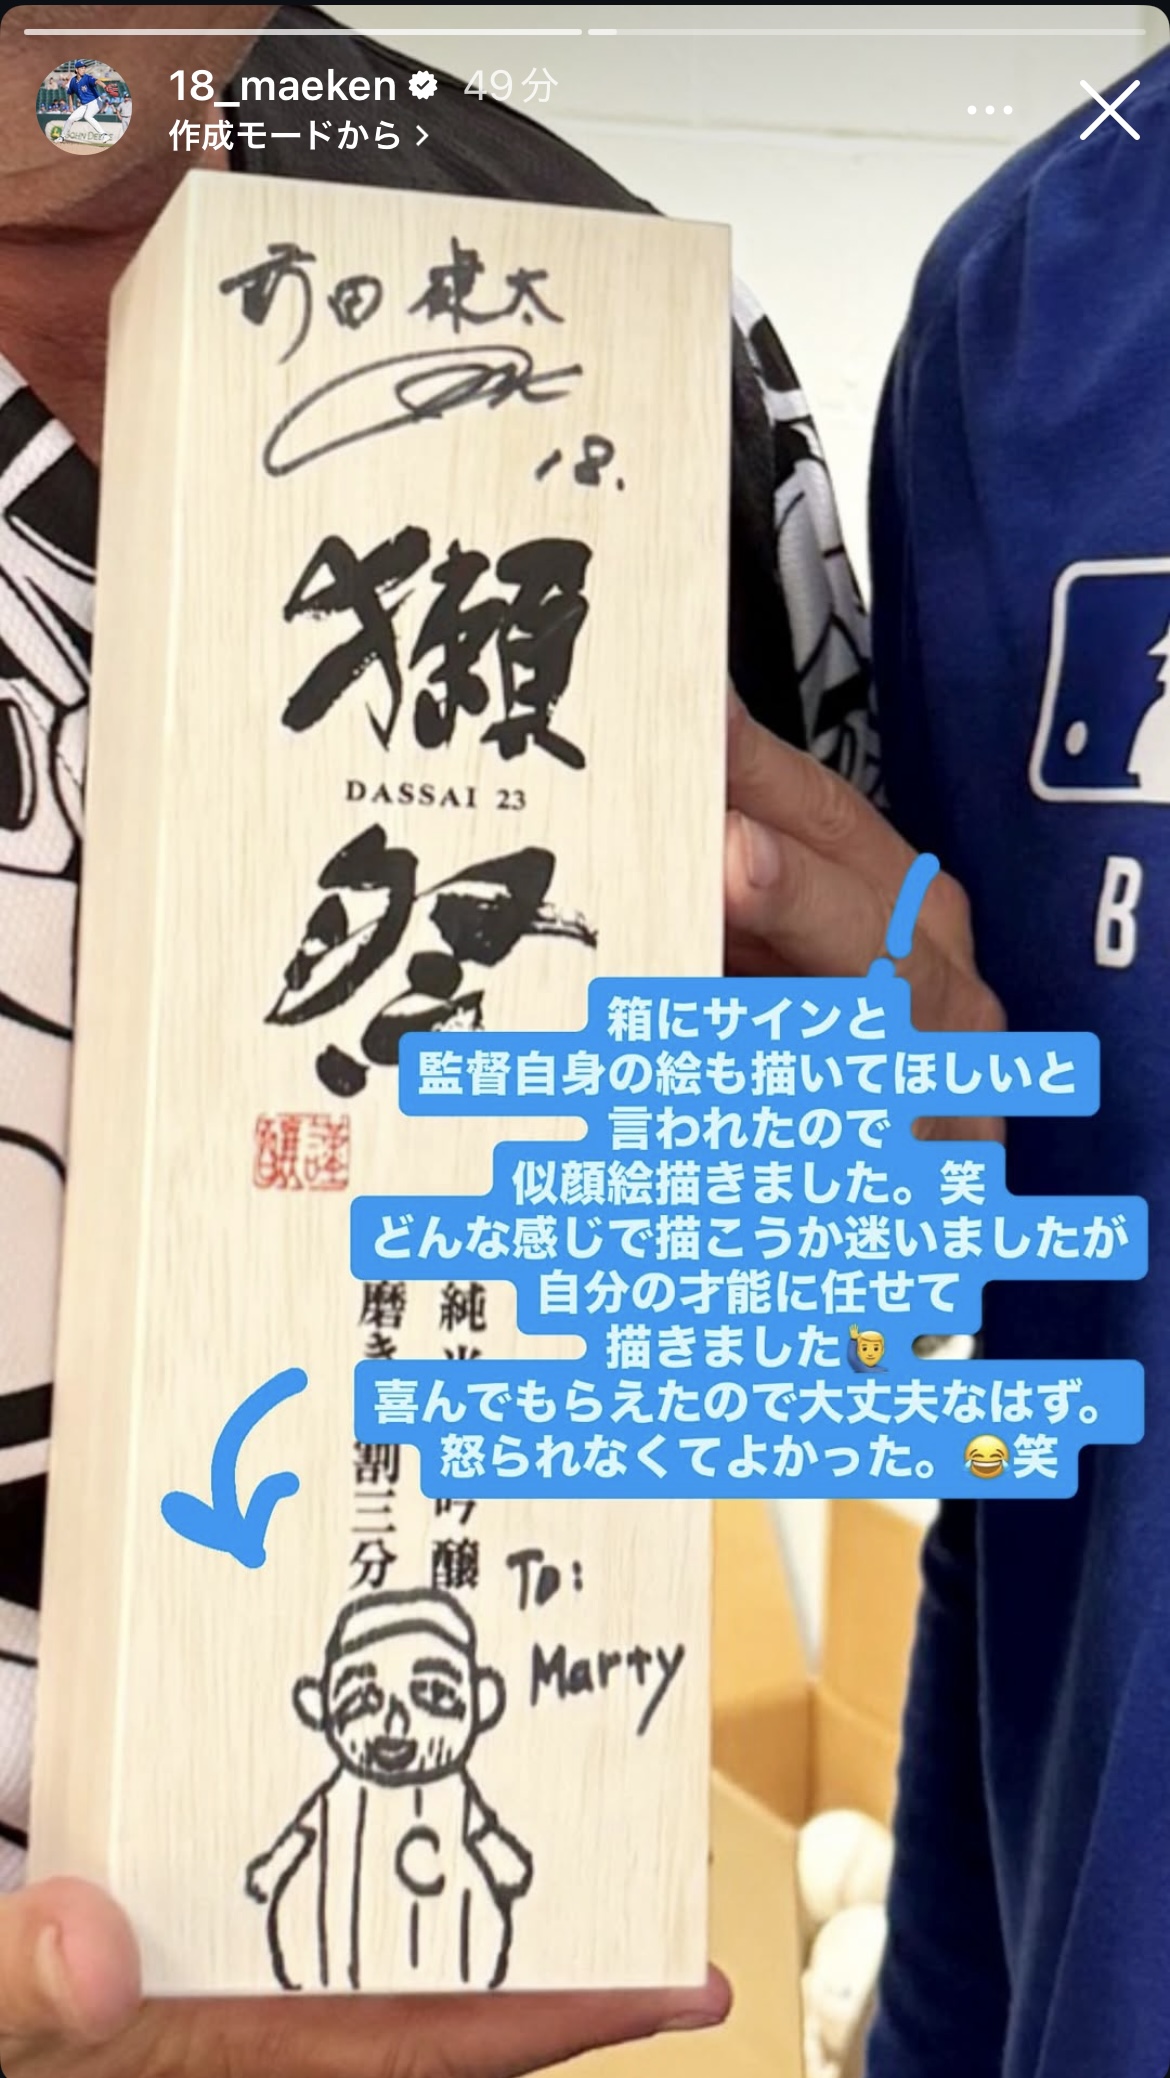 18_maeken 49分
作成モードから
前田健太
18.
獺
DASSAI 23
祭
箱にサインと
監督自身の絵も描いてほしいと
言われたので
似顔絵描きました。笑
どんな感じで描こうか迷いましたが
自分の才能に任せて
描きました🙋‍♂️
喜んでもらえたので大丈夫なはず。
怒られなくてよかった。😂笑
純
吟醸
磨き
割三分
To:
Marty
C
B